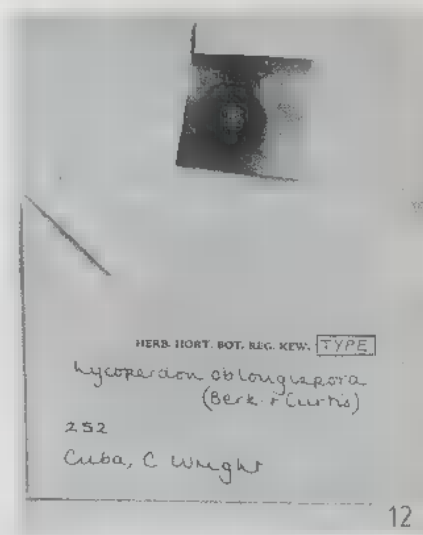 HERB. HORT. BOT. REG. KEW. TYPE
Lycoperdon oblongispora
(Berk. & Curtis)
252
Cuba, C Wright
12